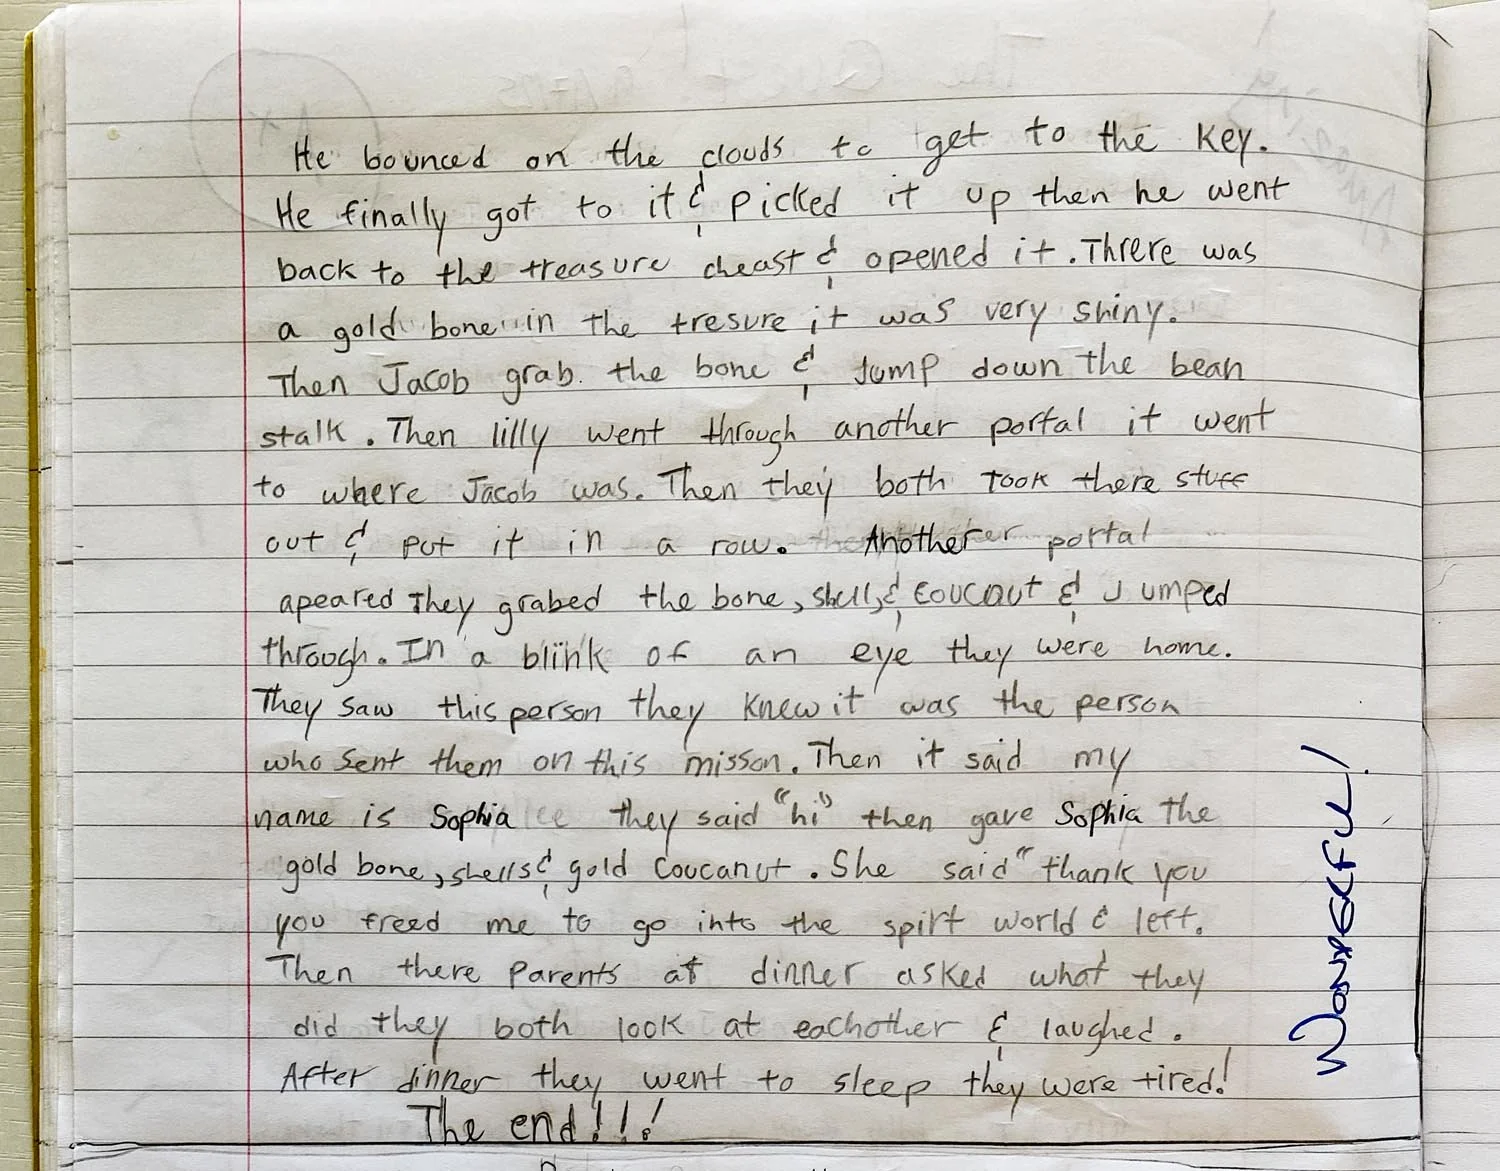 He bounced on the clouds to get to the key.
He finally got to it & picked it up then he went
back to the treasure cheast & opened it. Threre was
a gold bone in the tresure it was very shiny.
Then Jacob grab the bone & Jump down the bean
stalk. Then lilly went through another portal it went
to where Jacob was. Then they both took there stuff
out & put it in a row. Another portal
apeared They grabed the bone, shell, & coucaut & Jumped
through. In a blink of an eye they were home.
They saw this person they knew it was the person
who sent them on this misson. Then it said my
name is Sophia they said "hi" then gave Sophia the
gold bone, shells & gold Coucanut. She said "thank you
you freed me to go into the spirt world & left.
Then there Parents at dinner asked what they
did they both look at eachother & laughed.
After dinner they went to sleep they were tired!
The end!!!
WONDERFUL!